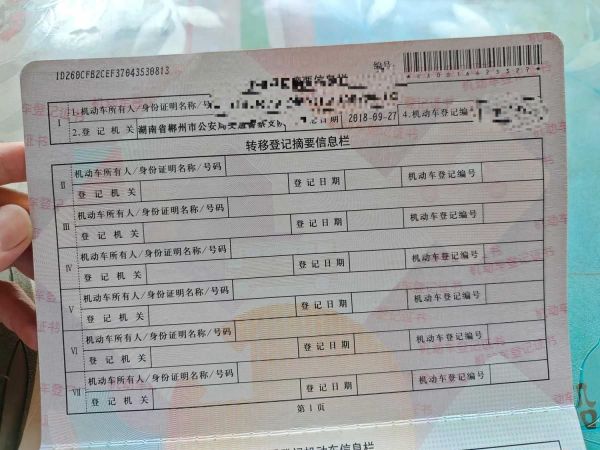 1D260CFB2CEF37043530813
编号:
1.机动车所有人/身份证明名称/号
I 2.登记机关 湖南省郴州市公安局交通警察支 2018-09-27 4.机动车登记编
转移登记摘要信息栏
II 机动车所有人/身份证明名称/号码
登记机关 登记日期 机动车登记编号
III 机动车所有人/身份证明名称/号码
登记机关 登记日期 机动车登记编号
IV 机动车所有人/身份证明名称/号码
登记机关 登记日期 机动车登记编号
V 机动车所有人/身份证明名称/号码
登记机关 登记日期 机动车登记编号
VI 机动车所有人/身份证明名称/号码
登记机关 登记日期 机动车登记编号
VII 机动车所有人/身份证明名称/号码
登记机关 登记日期 机动车登记编号
第1页
登记机动车信息栏